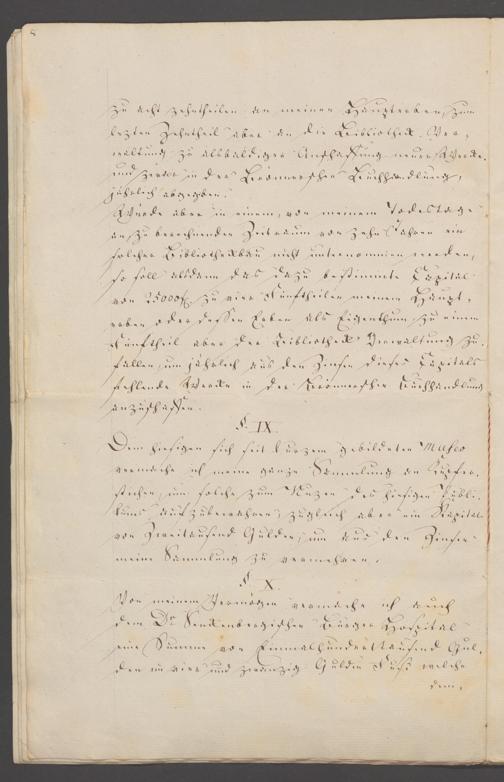 8
zu acht zehntheilen an meinen Haupterben, zum
lezten Zehntheil aber an die Bibliothek Ver,
waltung zu alsbaldiger Anschaffung neuer Werke,
und zwar in der Broennerschen Buchhandlung,
jährlich abgegeben.
Würde aber in einem, von meinem Todestage
an, zu berechnenden Zeitraum von zehn Jahren ein
solcher Bibliothekbau nicht unternommen werden,
so soll alsdann das dazu bestimmte Capital
von 25000 f. zu vier Fünftheilen meinem Haupt,
erben oder dessen Erben als Eigenthum zu einem
Fünftheil aber der Bibliothek Verwaltung zu,
fallen, um jährlich aus den Zinsen dieses Capitals
fehlende Werke in der Broennerschen Buchhandlung
anzuschaffen.
§. IX.
Dem hiesigen sich seit kurzem gebildeten Museo
vermache ich meine ganze Sammlung an Kupfer,
stichen, um solche zum Nuzen des hiesigen Publi,
kums aufzubewahren, zugleich aber ein Kapital
von Zweitausend Gulden, um aus den Zinsen
meine Sammlung zu vermehren.
§. X.
Von meinem Vermögen vermache ich auch
dem Dr. Senkenbergischen Bürger Hospital
eine Summe von Einmalhunderttausend Gul,
den im vier und zwanzig Gulden Fuß welche
dem,